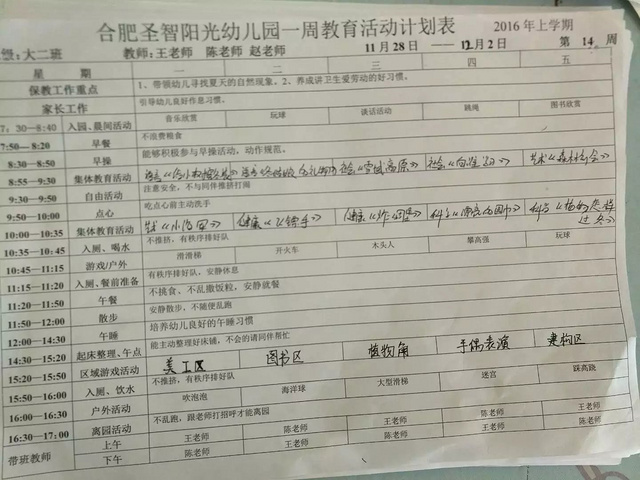 合肥圣智阳光幼儿园一周教育活动计划表 2016年上学期
大二班 教师:王老师 陈老师 赵老师 11月28日 ——12月2日 第 14 周
星 期 一 二 三 四 五
保教工作重点 1、带领幼儿寻找夏天的自然现象。2、养成讲卫生爱劳动的好习惯。
家长工作 引导幼儿良好作息习惯。
7:30—8:40 入园、晨间活动 音乐欣赏 玩球 谈话活动 跳绳 图书欣赏
7:50—8:20 早餐 不浪费粮食
8:30—8:50 早操 能够积极参与早操活动，动作规范。
8:55—9:30 集体教育活动
9:30—9:50 自由活动 注意安全，不与同伴推挤打闹
9:50—10:00 点心 吃点心前主动洗手
10:00—10:35 集体教育活动 健康《飞镖手》
10:35—10:45 入厕、喝水 不推挤，有秩序排好队
10:45—11:15 游戏/户外 滑滑梯 开火车 木头人 攀高强 玩球
11:15—11:20 入厕、餐前准备 有秩序排好队、安静休息
11:20—11:50 午餐 不挑食、不乱撒饭粒，安静就餐
11:50—12:00 散步 安静散步，不随便乱跑
12:00—14:30 午睡 培养幼儿良好的午睡习惯
14:30—15:20 起床整理、午点 能主动整理好床铺，不会的请同伴帮忙
15:20—15:50 区域游戏活动 美工区 图书区 植物角 手偶表演 建构区
15:50—16:00 入厕、饮水 不推挤，有秩序排好队
16:00—16:30 户外活动 吹泡泡 海洋球 大型滑梯 迷宫 踩高跷
16:30—17:00 离园活动 不乱跑，跟老师打招呼才能离园
带班教师 上午 王老师 陈老师 王老师 陈老师 王老师
下午 陈老师 王老师 陈老师 王老师 陈老师